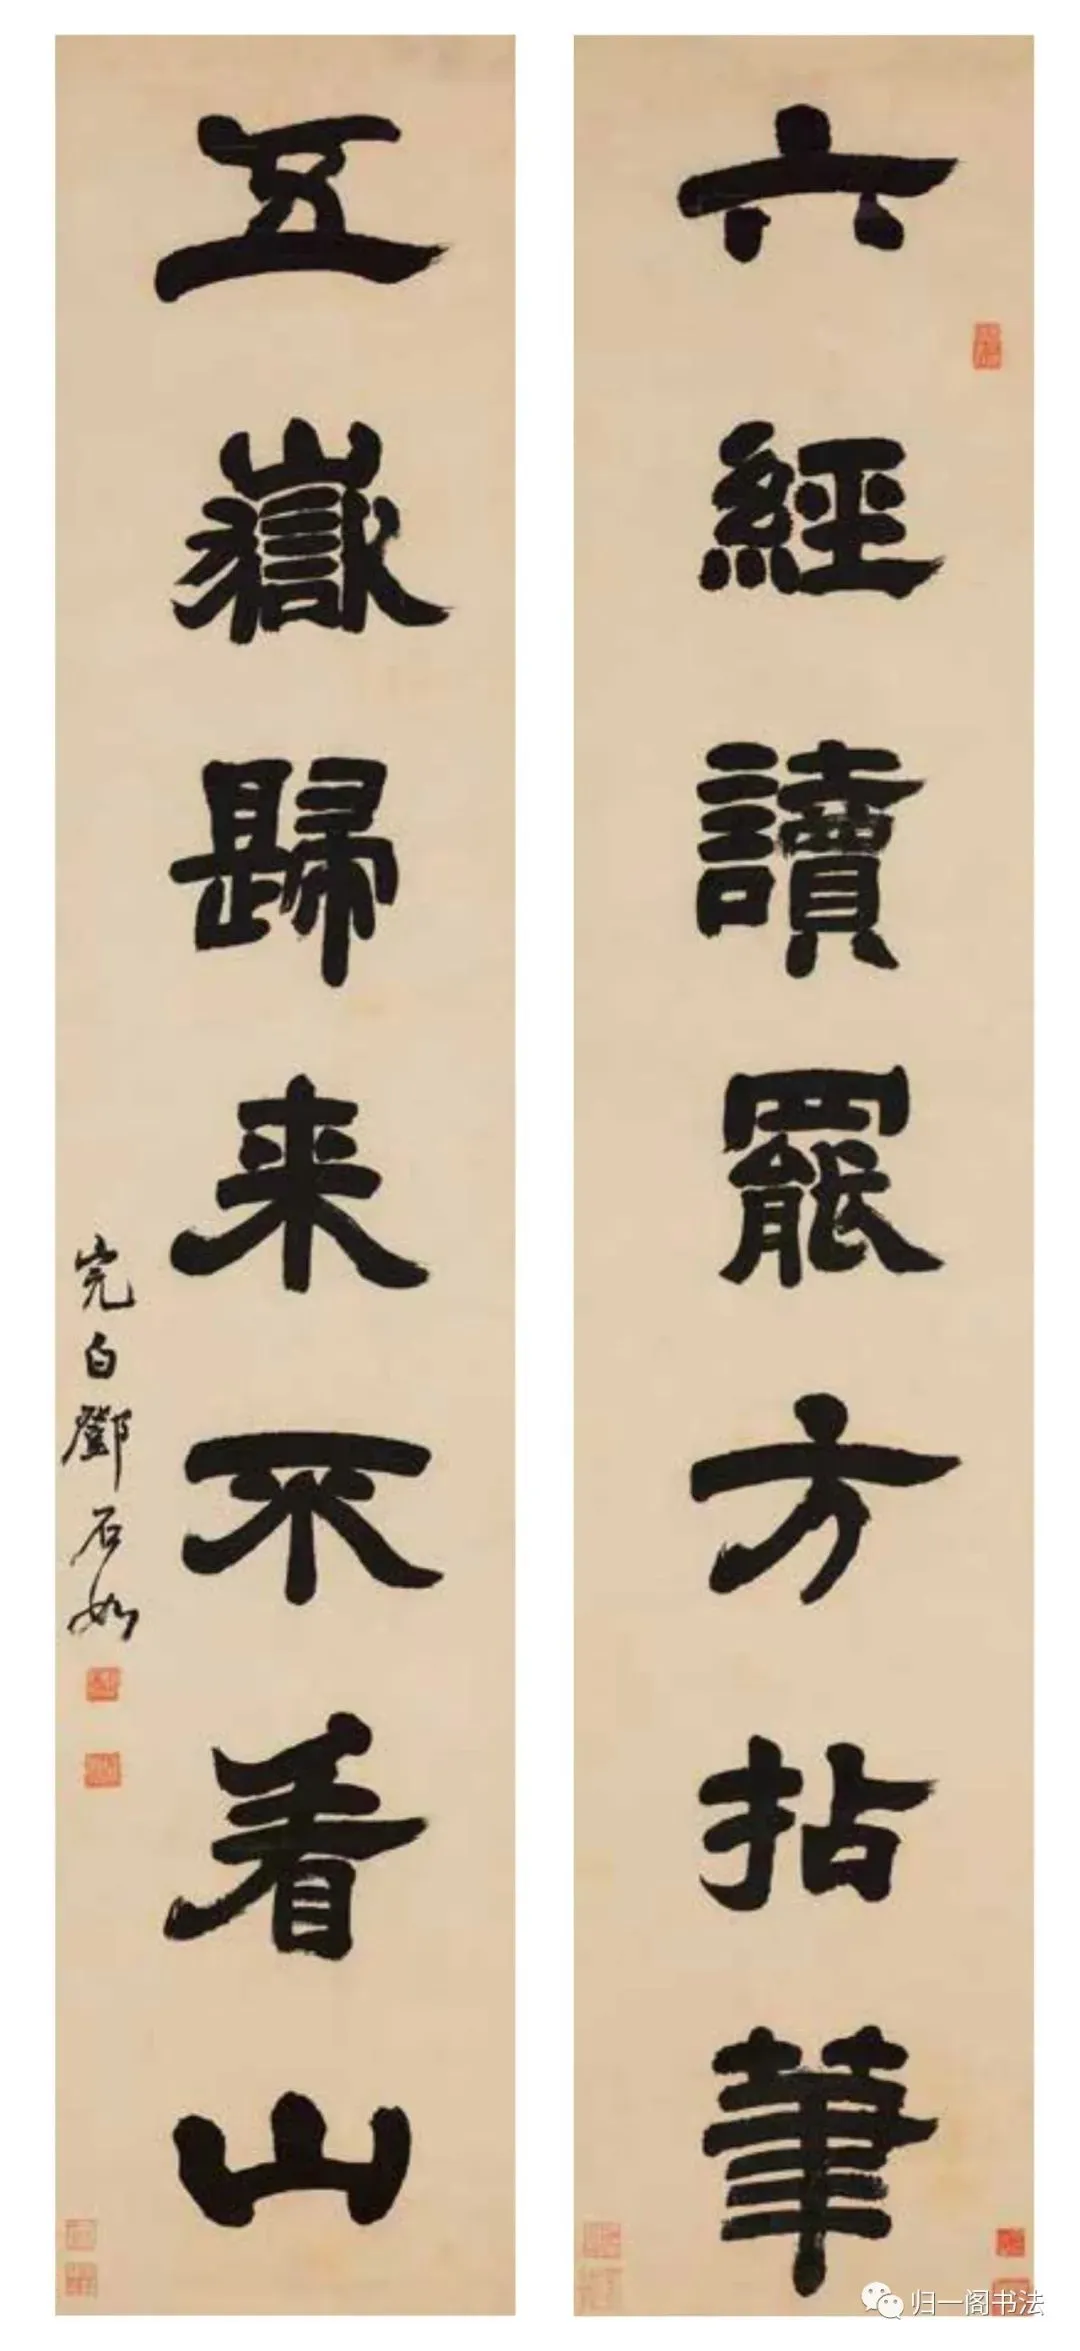 六經讀罷方拈筆
五嶽歸来不看山
完白鄧石如
归一阁书法